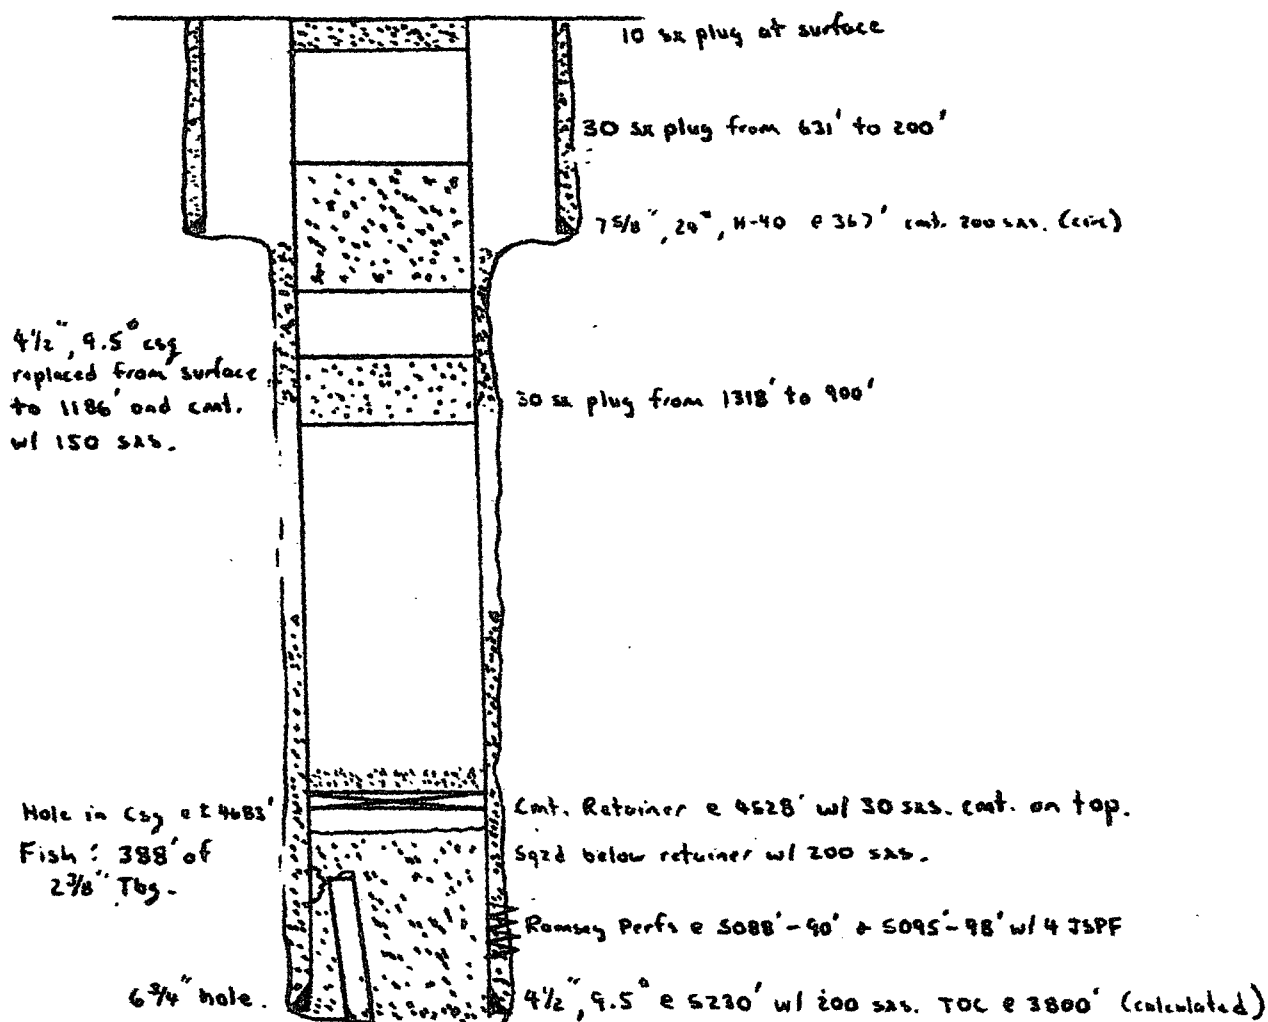 10 sx plug at surface
30 sx plug from 631' to 200'
7 5/8", 24#, H-40 @ 367' cmt. 200 sxs. (circ)
4 1/2", 9.5# csg
replaced from surface
to 1186' and cmt.
w/ 150 sxs.
30 sx plug from 1318' to 900'
Hole in Csg @ ± 4683'
Fish: 388' of
2 3/8" Tbg.
Cmt. Retainer @ 4628' w/ 30 sxs. cmt. on top.
Sqzd below retainer w/ 200 sxs.
Ramsey Perfs @ 5088'-90' & 5095'-98' w/ 4 JSPF
6 3/4" hole.
4 1/2", 9.5# @ 5230' w/ 200 sxs. TOC @ 3800' (calculated)